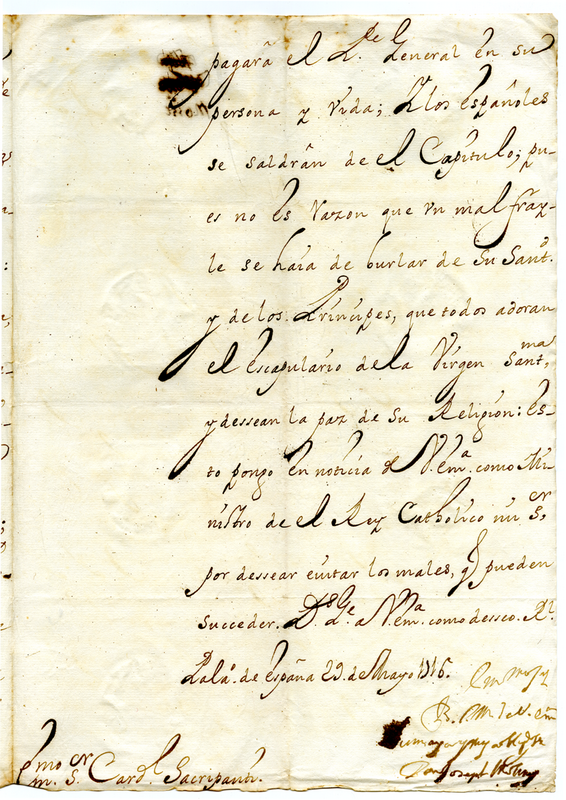 pagarà el P.e General en su
persona y vida; Y los españoles
se saldràn de el Capitulo; pu-
es no es razon que un mal fray-
le se haia de burlar de Su Sant.d
y de los Principes, que todos adoran
el escapulario de la Virgen Sant.ma
y dessean la paz de su Religion: es-
to pongo en noticia de V. em.a como Mi-
nistro de el Rey Catholico mi S.or
por dessear euitar los males, q̃ pueden
succeder. D.s G.e a V. em.a como desseo. R.l
Pala.o de españa 29. de Mayo 1716.
B. L. M. de V. em
Don Joseph Molines
em.mo S.or Card.l Sacripanti.